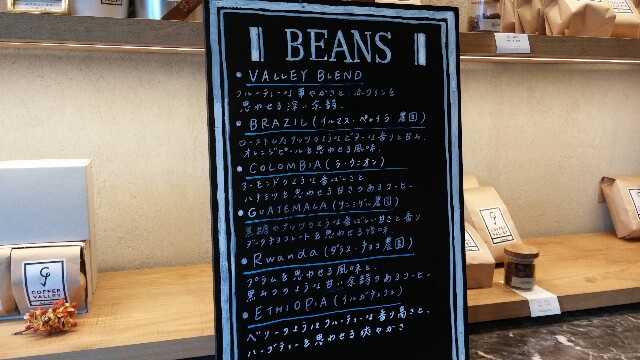 BEANS
• VALLEY BLEND
フルーティーな華やかさと、赤ワインを
思わせる深い余韻。
• BRAZIL (イルマス・ペレイラ 農園)
ローストしたナッツのような香りと甘み、
オレンジピールを思わせる風味。
• COLOMBIA (ラ・ウニオン)
アーモンドのような香ばしさと
ハチミツを思わせる甘さのあるコーヒー。
• GUATEMALA (サンミゲル農園)
黒糖やナッツのような香ばしい甘さと香り
ダークチョコレートを思わせる後味。
• Rwanda (ダラス・チョコ 農園)
プラムを思わせる風味と、
黒みつのような甘い余韻のあるコーヒー
• ETHIOPIA (イルガチェフェ)
ベリーのようなフルーティーな香り高さと、
ハーブティーを思わせる爽やかさ
COFFEE
VALLEY